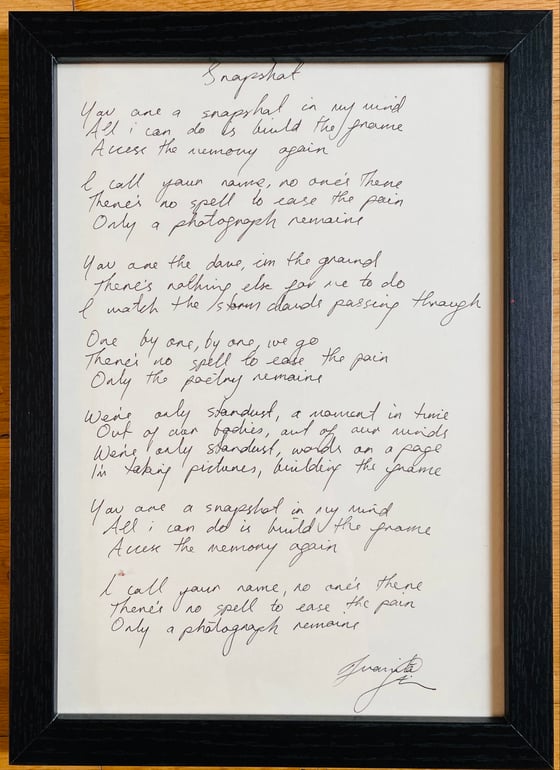 Snapshot
You are a snapshot in my mind
All i can do is build the frame
Access the memory again
I call your name, no one's there
There's no spell to ease the pain
Only a photograph remains
You are the dove, im the ground
There's nothing else for me to do
I watch the storm clouds passing through
One by one, by one, we go
There's no spell to ease the pain
Only the poetry remains
We're only stardust, a moment in time
Out of our bodies, out of our minds
We're only stardust, words on a page
I'm taking pictures, building the frame
You are a snapshot in my mind
All i can do is build the frame
Access the memory again
I call your name, no one's there
There's no spell to ease the pain
Only a photograph remains
Juanita